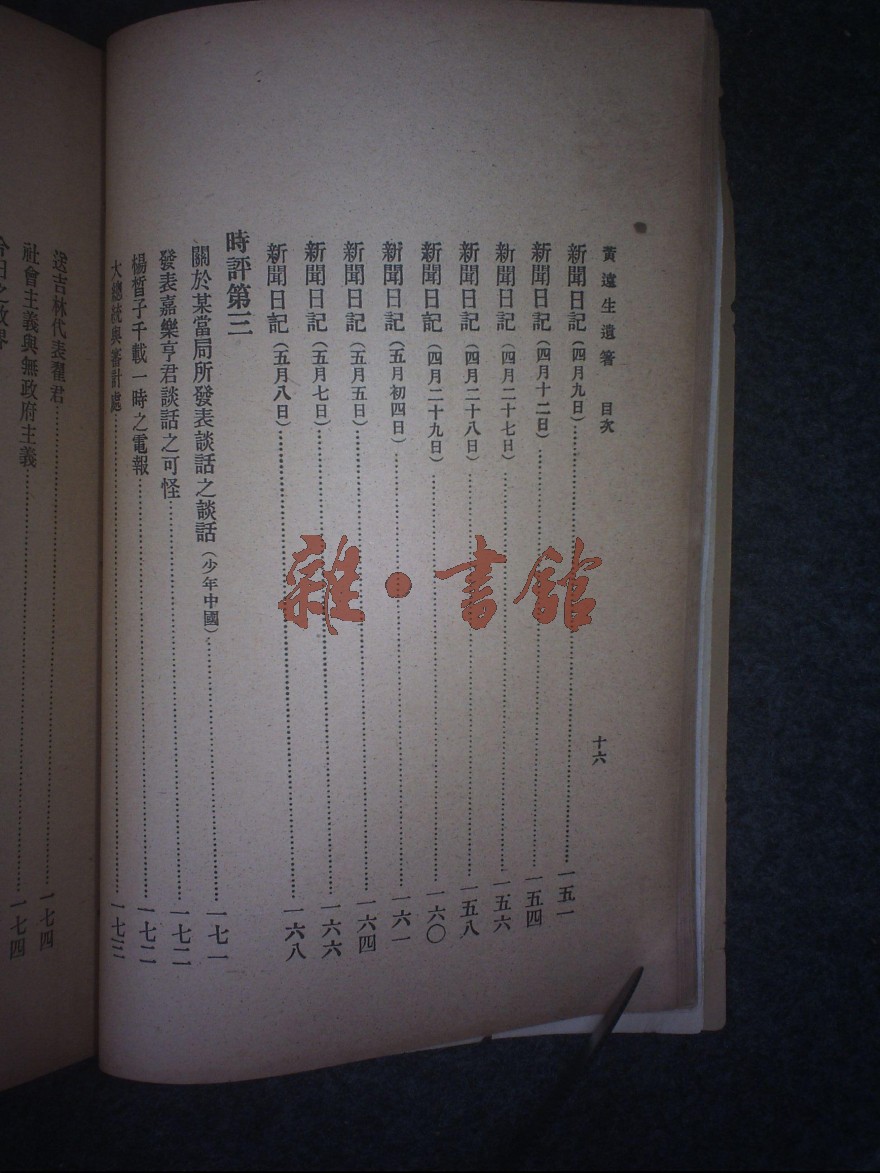 黃遠生遺著　目次
十六
新聞日記（四月九日）……一五一
新聞日記（四月十二日）……一五四
新聞日記（四月二十七日）……一五六
新聞日記（四月二十八日）……一五八
新聞日記（四月二十九日）……一六〇
新聞日記（五月初四日）……一六一
新聞日記（五月五日）……一六四
新聞日記（五月七日）……一六六
新聞日記（五月八日）……一六八
時評第三
關於某當局所發表談話之談話（少年中國）……一七一
發表嘉樂亨君談話之可怪……一七二
楊皙子千載一時之電報……一七二
大總統與審計處……一七三
送吉林代表翟君……一七四
社會主義與無政府主義……一七四
今日之政界
雜·書館